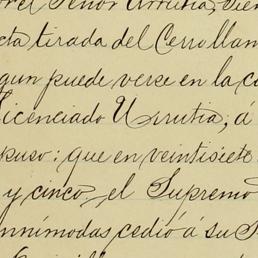 or el Señor Urrutia, vien
cta tirada del Cerro llam
gun puede verse en la co
Licenciado Urrutia, á
puso: que en veintisiete
y cinco, el Supremo
nnímodas cedió á su S